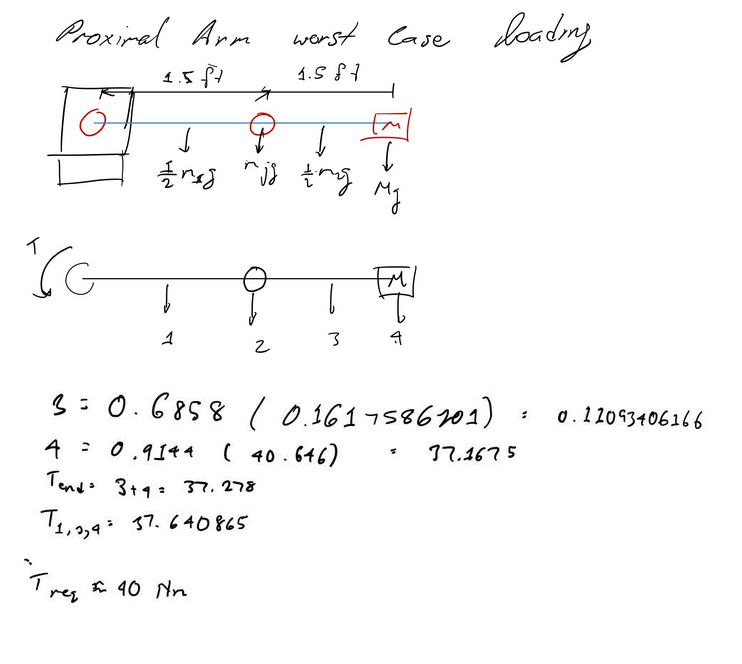 Proximal Arm worst Case loading
1.5 ft 1.5 ft
M
1/2 m1g mjg 1/2 m2g Mg
T
M
1 2 3 4
3 = 0.6858 ( 0.1617586201) = 0.11093406166
4 = 0.9144 ( 40.646) = 37.1675
Tend = 3+4 = 37.278
= 37.640865
∴ Treq ≈ 40 Nm